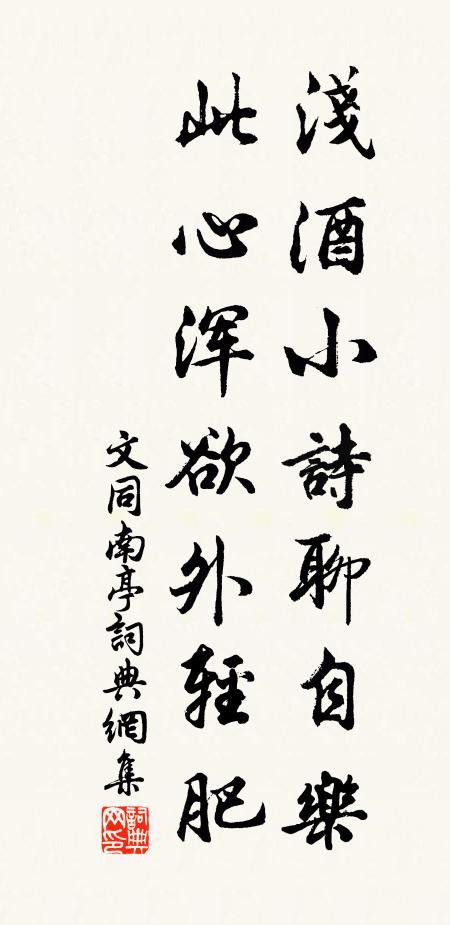 淺酒小詩聊自樂
此心浑欲外輕肥
文同南亭詞典網集
詞典网印